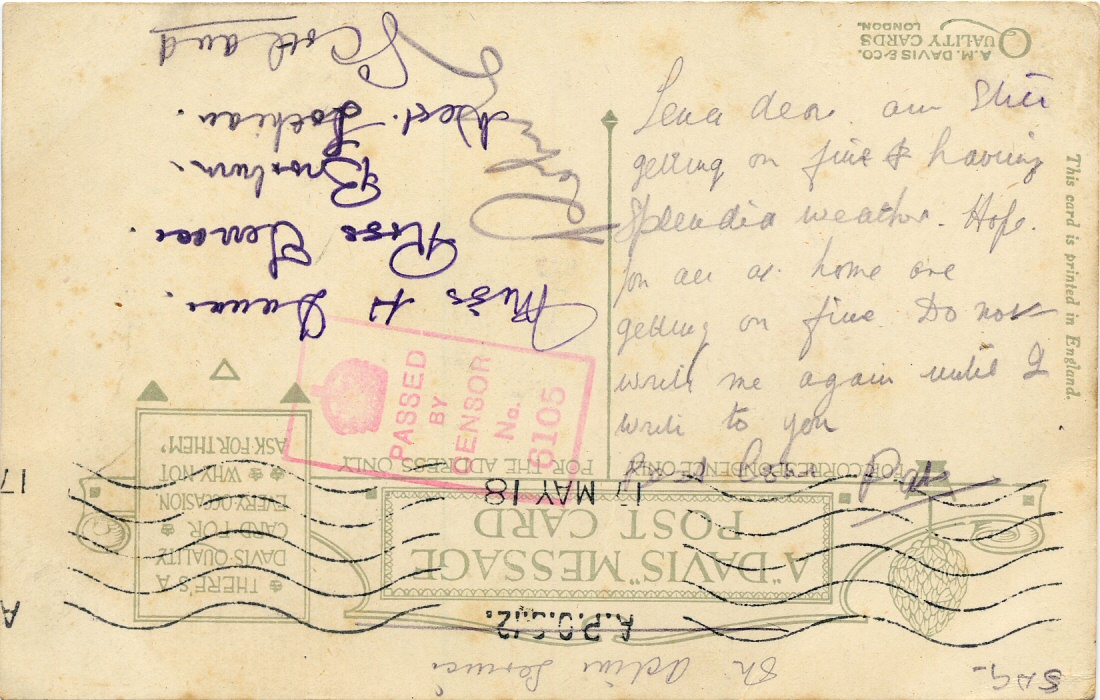 A.M. DAVIS & CO.
QUALITY CARDS
LONDON.
This card is printed in England.
Lena dear am still
getting on fine & having
splendid weather. Hope
you all at home are
getting on fine. Do not
write me again until I
write to you
Best love
On Active Service
A.P.O. S.12.
17 MAY 18
A
17
A "DAVIS" MESSAGE
POST CARD
FOR CORRESPONDENCE ONLY
FOR THE ADDRESS ONLY
THERE'S A
DAVIS QUALITY
CARD FOR
EVERY OCCASION
WHY NOT
ASK FOR THEM?
PASSED
BY
CENSOR
No.
6105
Miss H
Ross Terrace.
Broxburn.
West. Lothian.
Scotland